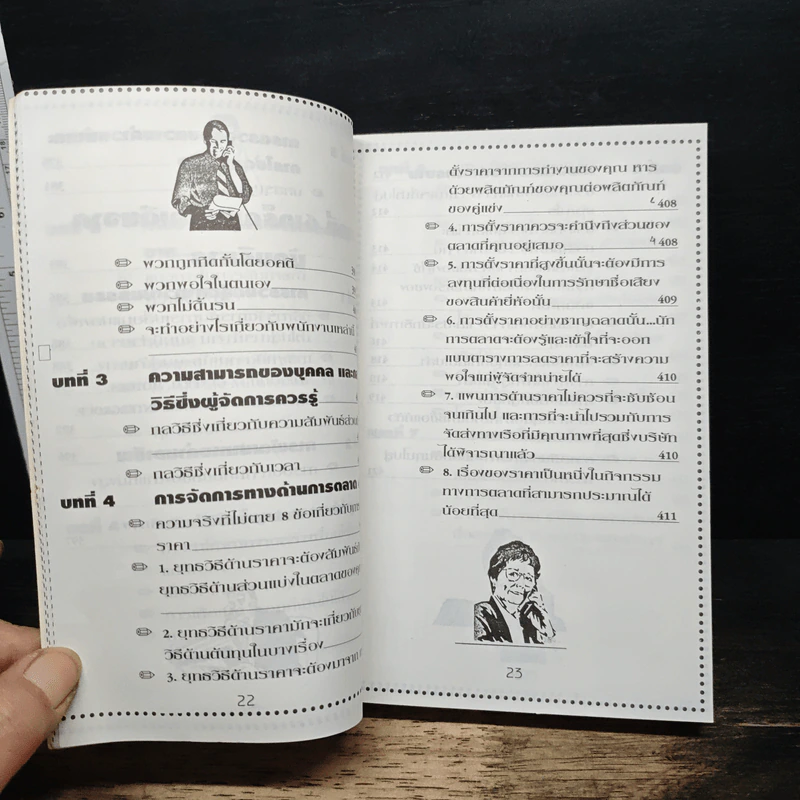 พวกถูกกีดกั้นโดยอคติ
พวกพอใจในตนเอง
พวกไม่ดิ้นรน
จะทำอย่างไรเกี่ยวกับพนักงานเหล่านี้
บทที่ 3 ความสามารถของบุคคล และ
วิธีซึ่งผู้จัดการควรรู้
กลวิธีซึ่งเกี่ยวกับความสัมพันธ์ส่วน
กลวิธีซึ่งเกี่ยวกับเวลา
บทที่ 4 การจัดการทางด้านการตลาด
ความจริงที่ไม่ตาย 8 ข้อเกี่ยวกับการ
ราคา
1. ยุทธวิธีด้านราคาจะต้องสัมพันธ์
ยุทธวิธีด้านส่วนแบ่งในตลาดของ
2. ยุทธวิธีด้านราคามักจะเกี่ยวกับ
วิธีด้านต้นทุนในบางเรื่อง
3. ยุทธวิธีด้านราคาจะต้องมาจาก
22
ตั้งราคาจากการทำงานของคุณ หาร
ด้วยผลิตภัณฑ์ของคุณต่อผลิตภัณฑ์
ของคู่แข่ง 408
4. การตั้งราคาควรจะคำนึงถึงส่วนของ
ตลาดที่คุณอยู่เสมอ 408
5. การตั้งราคาที่สูงขึ้นนั้นจะต้องมีการ
ลงทุนที่ต่อเนื่องในการรักษาชื่อเสียง
ของสินค้ายี่ห้อนั้น 409
6. การตั้งราคาอย่างชาญฉลาดนั้น...นัก
การตลาดจะต้องรู้และเข้าใจที่จะออก
แบบตารางการลดราคาที่จะสร้างความ
พอใจแก่ผู้จัดจำหน่ายได้ 410
7. แผนการด้านราคาไม่ควรที่จะซับซ้อน
จนเกินไป และการที่จะนำไปรวมกับการ
จัดส่งทางเรือที่มีคุณภาพที่สุดซึ่งบริษัท
ได้พิจารณาแล้ว 410
8. เรื่องของราคาเป็นหนึ่งในกิจกรรม
ทางการตลาดที่สามารถประมาณได้
น้อยที่สุด 411
23